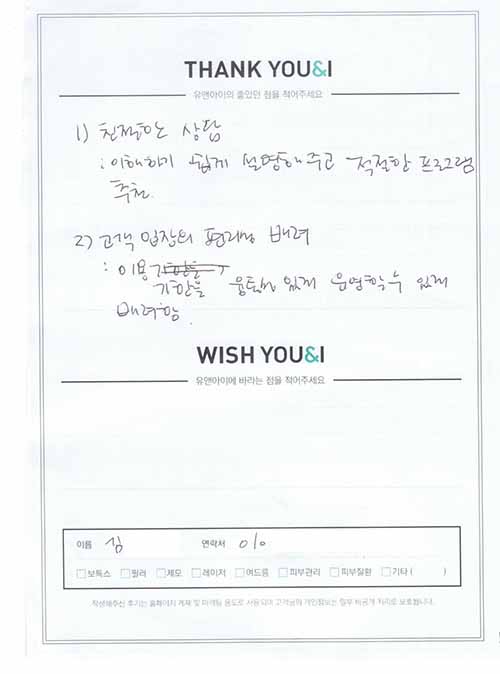 THANK YOU&I
유앤아이의 좋았던 점을 적어주세요
1) 친절하는 상담
: 이해하기 쉽게 설명해주고 적절한 프로그램
추천.
2) 고객 입장의 편리성 배려
: 이용
기한을 융통성 있게 운영할 수 있게
배려함.
WISH YOU&I
유앤아이에 바라는 점을 적어주세요
이름 김 연락처 010
보톡스 필러 제모 레이저 여드름 피부관리 피부질환 기타 ( )
작성해주신 후기는 홈페이지 게재 및 마케팅 용도로 사용되며 고객님의 개인정보는 일부 비공개 처리로 보호됩니다.